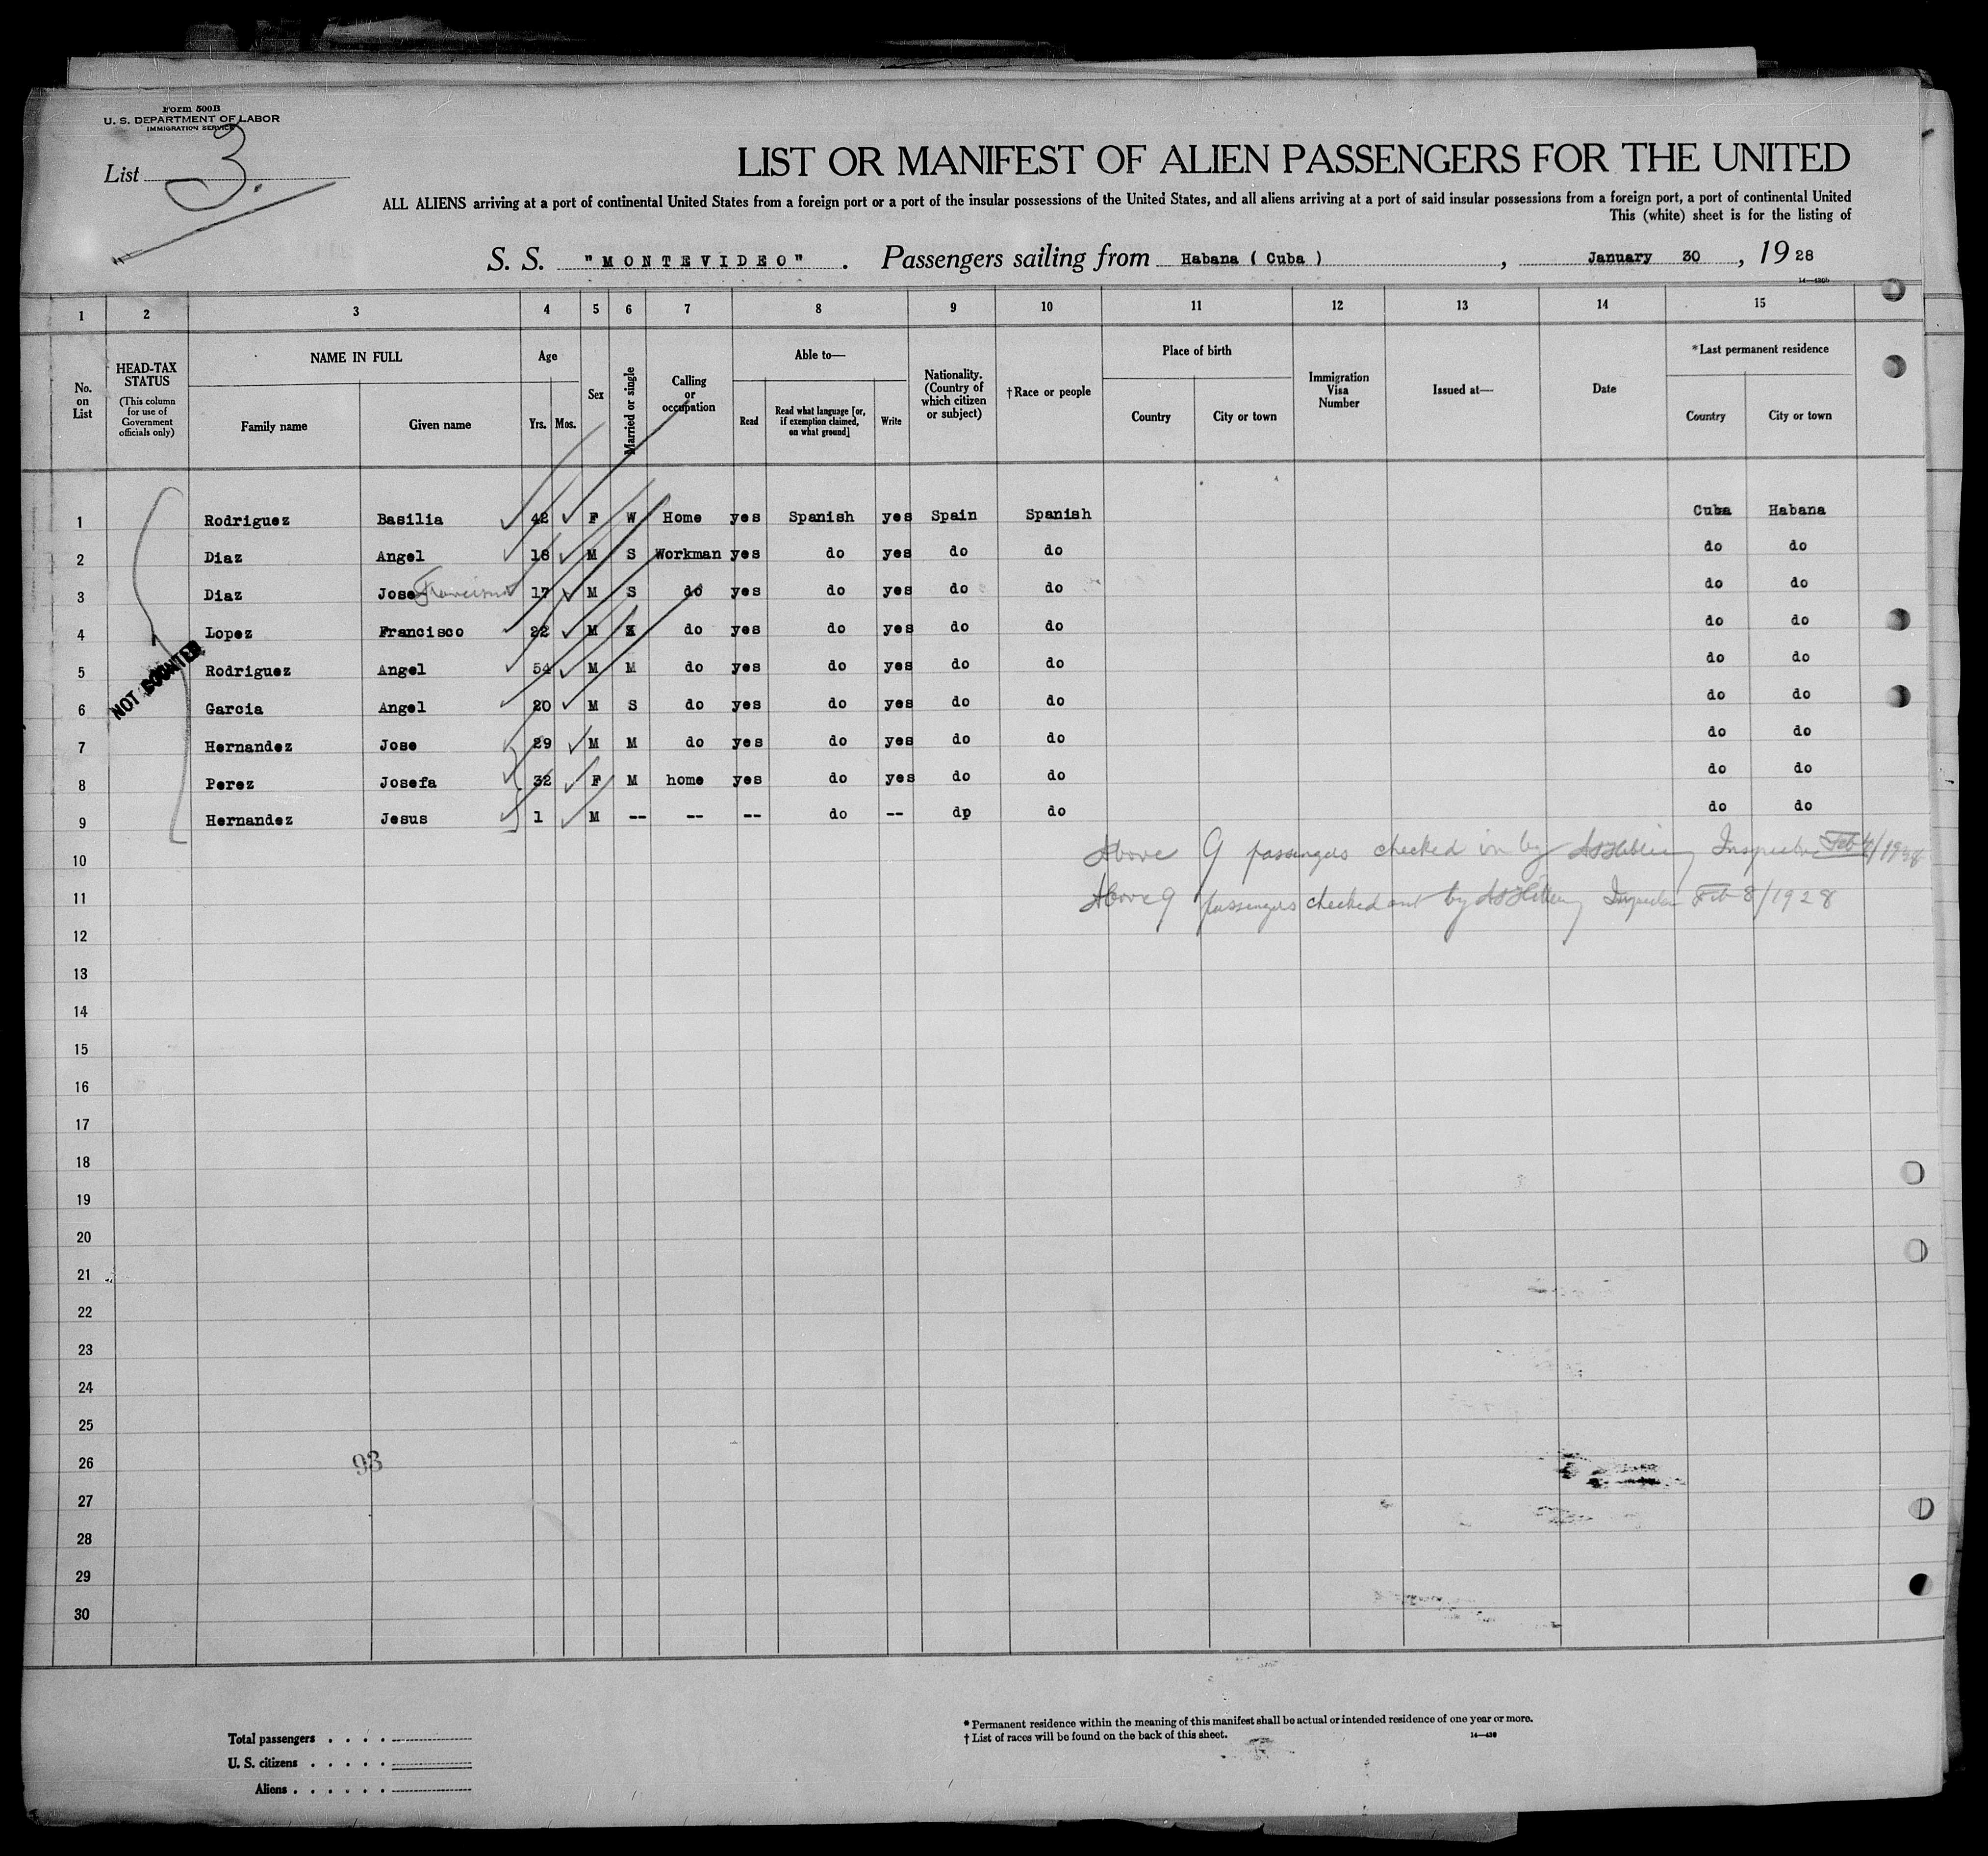 Form 500B
U. S. DEPARTMENT OF LABOR
IMMIGRATION SERVICE
List 3.
LIST OR MANIFEST OF ALIEN PASSENGERS FOR THE UNITED
ALL ALIENS arriving at a port of continental United States from a foreign port or a port of the insular possessions of the United States, and all aliens arriving at a port of said insular possessions from a foreign port, a port of continental United
This (white) sheet is for the listing of
S. S. "MONTEVIDEO". Passengers sailing from Habana ( Cuba ), January 30, 19 28
1 2 3 4 5 6 7 8 9 10 11 12 13 14 15
No. on List
HEAD-TAX STATUS (This column for use of Government officials only)
NAME IN FULL
Family name Given name
Age
Yrs. Mos.
Sex
Married or single
Calling or occupation
Able to—
Read Read what language [or, if exemption claimed, on what ground] Write
Nationality. (Country of which citizen or subject)
†Race or people
Place of birth
Country City or town
Immigration Visa Number
Issued at—
Date
*Last permanent residence
Country City or town
1 Rodriguez Basilia 42 F W Home yes Spanish yes Spain Spanish Cuba Habana
2 Diaz Angel 18 M S Workman yes do yes do do do do
3 Diaz Jose Francisco 17 M S do yes do yes do do do do
4 Lopez Francisco 22 M do yes do yes do do do do
5 Rodriguez Angel 54 M M do yes do yes do do do do
6 Garcia Angel 20 M S do yes do yes do do do do
7 Hernandez Jose 29 M M do yes do yes do do do do
8 Perez Josefa 32 F M home yes do yes do do do do
9 Hernandez Jesus 1 M -- -- -- do -- dp do do do
NOT COUNTED
10 Above 9 passengers checked in by Inspector Feb 4/1928
11 Above 9 passengers checked out by Inspector Feb 8/1928
12
13
14
15
16
17
18
19
20
21
22
23
24
25
26
93
27
28
29
30
Total passengers . . . .
U. S. citizens . . . . .
Aliens . . . . . .
* Permanent residence within the meaning of this manifest shall be actual or intended residence of one year or more.
† List of races will be found on the back of this sheet.
14—430